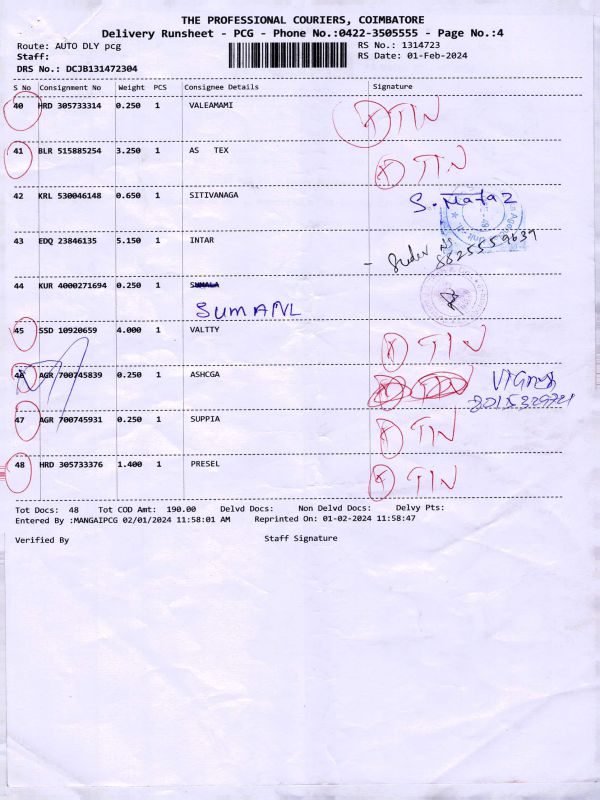 THE PROFESSIONAL COURIERS, COIMBATORE
Delivery Runsheet - PCG - Phone No.:0422-3505555 - Page No.:4
Route: AUTO DLY pcg RS No.: 1314723
Staff: RS Date: 01-Feb-2024
DRS No.: DCJB131472304
S No Consignment No Weight PCS Consignee Details Signature
40 HRD 305733314 0.250 1 VALEAMAMI TIN
41 BLR 515885254 3.250 1 AS TEX TIN
42 KRL 530046148 0.650 1 SITIVANAGA
43 EDQ 23846135 5.150 1 INTAR
8825559639
44 KUR 4000271694 0.250 1 SUMALA
SUMANL
45 SSD 10920659 4.000 1 VALTTY TIN
46 AGR 700745839 0.250 1 ASHCGA TIN
47 AGR 700745931 0.250 1 SUPPIA TIN
48 HRD 305733376 1.400 1 PRESEL TIN
Tot Docs: 48 Tot COD Amt: 190.00 Delvd Docs: Non Delvd Docs: Delvy Pts:
Entered By :MANGAIPCG 02/01/2024 11:58:01 AM Reprinted On: 01-02-2024 11:58:47
Verified By Staff Signature